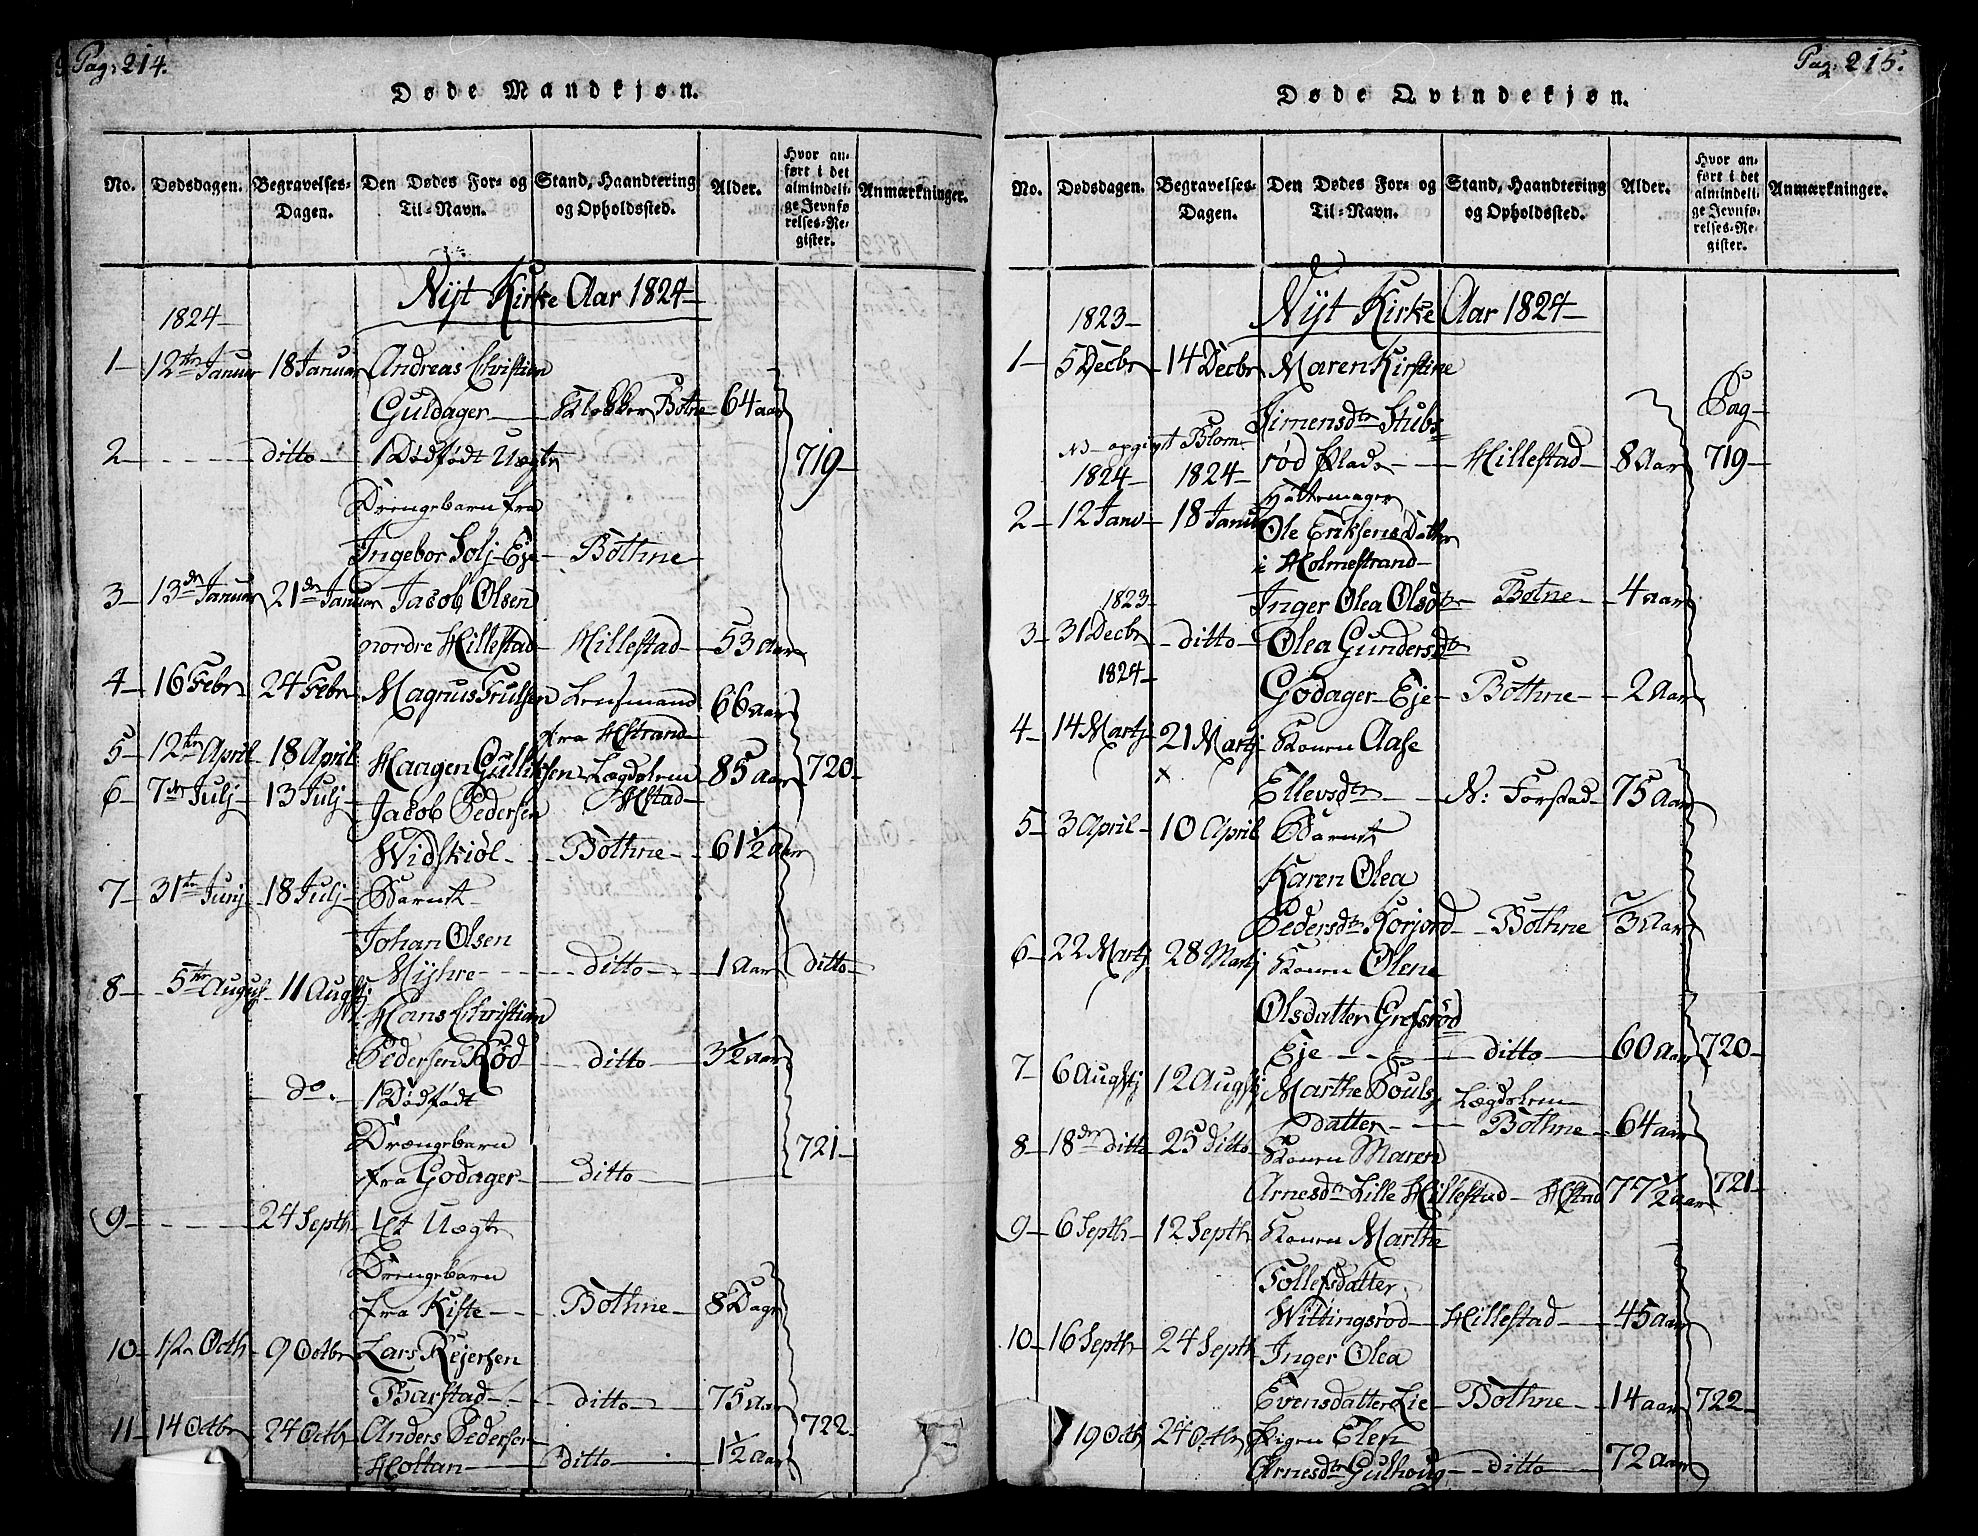 Pag: 214.
Døde Mandkjøn.
No. Dødsdagen. Begravelses-Dagen. Den Dødes For- og Til-Navn. Stand, Haandtering og Opholdssted. Alder. Hvor anført i det almindelige Jevnførelses-Register. Anmærkninger.
Nyt Kirke Aar 1824
1824
1 12te Januar 18 Januar Andreas Christian
Guldager Klokker Botne 64 aar
2 ditto 1 Dødfødt Uægte 719
Drengebarn fra
Ingebor Solj-Eje Bothne
3 13de Januar 21de Januar Jacob Olsen
nordre Hillestad Hillestad 53 aar
4 16 Febr 24 Febr Magnus Trulsen Lensmand 66 aar
fra HStrand
5 12te April 18 April Haagen Gulliksen Lægdslem 85 aar 720
HStad
6 7de Julj 13 Julj Jakob Pedersen
Widskiøl Bothne 61 1/2 aar
7 31te Junj 18 Julj Barnet
Johan Olsen
Myhre ditto 1 Aar ditto
8 5te August 11 Augstj Hans Christian
Pedersen Rød ditto 3 1/2 aar
do. 1 Dødfødt
Drængebarn 721
fra Godager ditto
9 24 Septbr 1 Et Uægte
Drengebarn
fra Kiste Bothne 8 Dage
10 1/2 Octb 9 Octbr Lars Rejersen
Barstad ditto 75 aar
11 14 Octbr 24 Octb Anders Pedersen 722
Holtan ditto 1 1/2 aar
Pag: 215.
Døde Qvindekjøn.
No. Dødsdagen. Begravelses-Dagen. Den Dødes For- og Til-Navn. Stand, Haandtering og Opholdssted. Alder. Hvor anført i det almindelige Jevnførelses-Register. Anmærkninger.
Nyt Kirke Aar 1824
1823
1 5 Decbr 14 Decbr Maren Kirstine
Simensdtr Stubs Pag
rød Plads Hillestad 8 Aar 719
1824 1824
Hattemager
2 12 Janv 18 Januar Ole Eriksens Datter
i Holmestrand
1823 Inger Olea Olsdtr Botne 4 aar
3 31 Decbr ditto Olea Gundersdtr
1824 Godager Eje Bothne 2 Aar
4 14 Martj 21 Martj Konen Aase
x
Ellevsdtr N: Forstad 75 Aar
5 3 April 10 April Barnet
Karen Olea
Pedersdtr Korjord Bothne 3 Aar
6 22 Martj 28 Martj Konen Olene
Olsdatter Grefsrød
Eje ditto 60 Aar 720
7 6 Augstj 12 Augstj Marthe Pouls Lægdslem
datter Bothne 64 aar
8 18de ditto 25 ditto Konen Maren
Arnesdtr Lille Hillestad HStad 77 1/2 aar 721
9 6 Septbr 12 Septbr Konen Marthe
Tollefsdatter
Wittingsrød Hillestad 45 aar
10 16 Septbr 24 Septbr Inger Olea
Evensdatter Lie Bothne 14 aar 722
19 Octb 24 Octbr Pigen Elen
Arnesdtr Gulhoug ditto 72 Aar